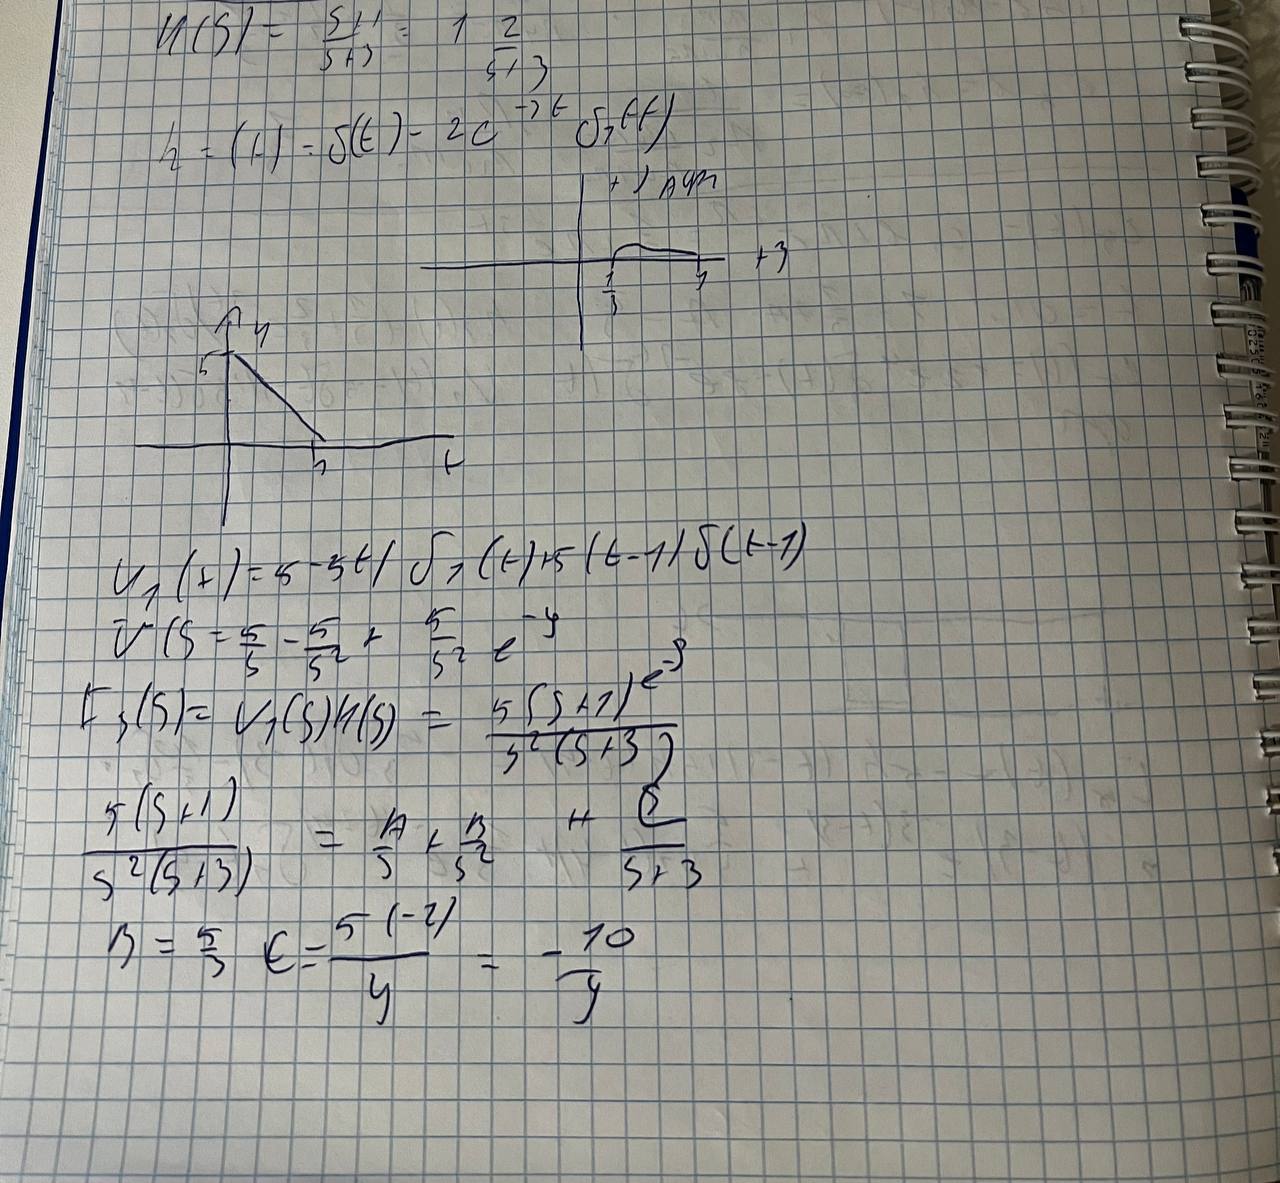 H(S) = \frac{S+1}{S+3} = 1 \frac{2}{S+3}
h = (t) = δ(t) - 2e^{-3t} δ_1(t)
+3
\frac{1}{3} 1
5
t
U_1(t) = 5 - 5t) δ_1(t) + 5(t-1) δ(t-1)
U(S = \frac{5}{S} - \frac{5}{S^2} + \frac{5}{S^2} e^{-s}
F_3(S) = U_1(S)H(S) = \frac{5(S+1)e^{-s}}{S^2(S+3)}
\frac{5(S+1)}{S^2(S+3)} = \frac{A}{S} + \frac{B}{S^2} + \frac{C}{S+3}
B = \frac{5}{3} C = \frac{5(-2)}{9} = -\frac{10}{9}